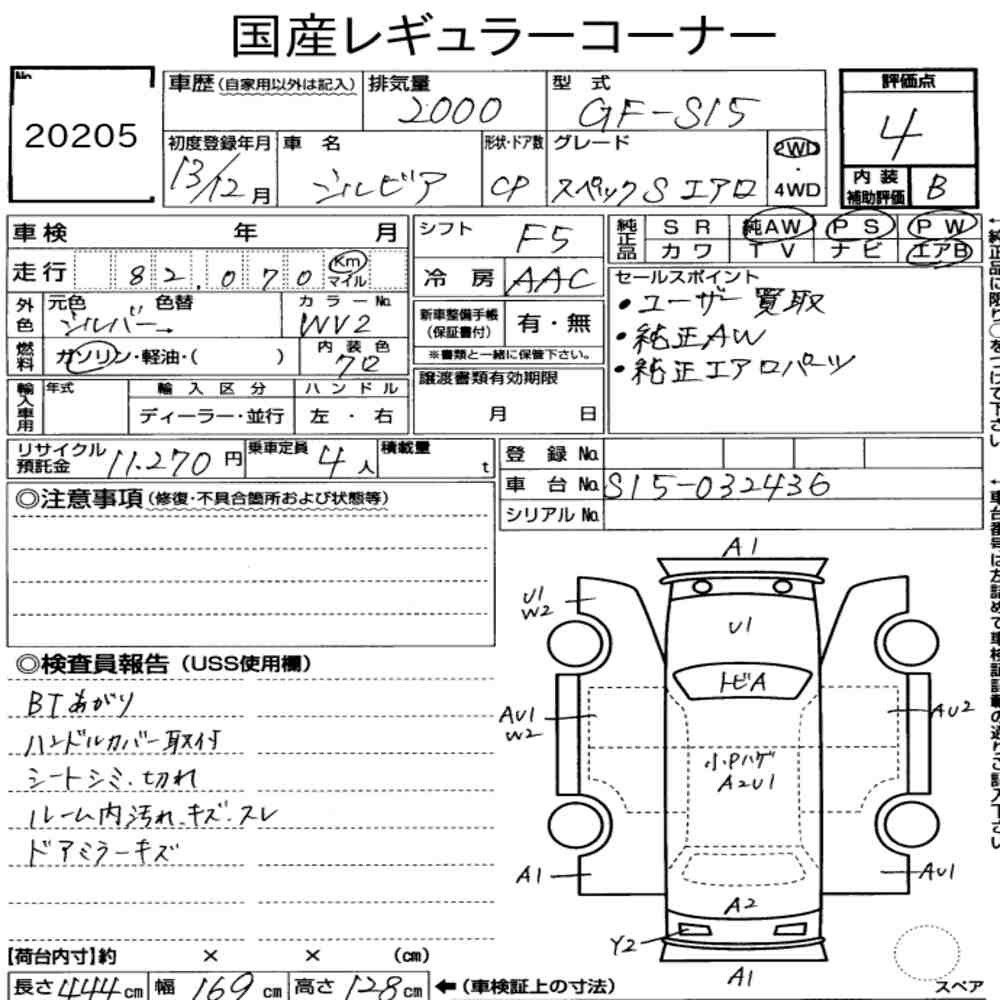 国産レギュラーコーナー
No.
20205
車歴(自家用以外は記入) 排気量 2000 型式 GF-S15
評価点 4
初度登録年月 13/12月 車名 シルビア 形状・ドア数 CP グレード スペックS エアロ 2WD・4WD
内装補助評価 B
車検 年 月
シフト F5
純正品 SR 純AW PS PW
カワ TV ナビ エアB
走行 82,070 Km マイル
冷房 AAC
セールスポイント
・ユーザー買取
・純正AW
・純正エアロパーツ
外色 元色 シルバー→ 色替 カラーNo. WV2
新車整備手帳(保証書付) 有・無
※書類と一緒に保管下さい。
燃料 ガソリン・軽油・( ) 内装色 クロ
譲渡書類有効期限
月 日
輸入車用 年式 輸入区分 ハンドル
ディーラー・並行 左・右
リサイクル預託金 11.270円 乗車定員 4人 積載量 t
登録No.
車台No. S15-032436
シリアルNo.
◎注意事項(修復・不具合箇所および状態等)
◎検査員報告(USS使用欄)
BTあがり
ハンドルカバー取付
シートシミ、切れ
ルーム内汚れ、キズ、スレ
ドアミラーキズ
A1
U1
W2
U1
トビA
AU1
W2
AU2
小Pハゲ
A2U1
A1
AU1
A2
Y2
A1
スペア
【荷台内寸】約 × × (cm)
長さ 444cm 幅 169cm 高さ 128cm ←(車検証上の寸法)
←純正品に限り○をつけて下さい
←車台番号は左詰めで車検証記載の通りご記入下さい